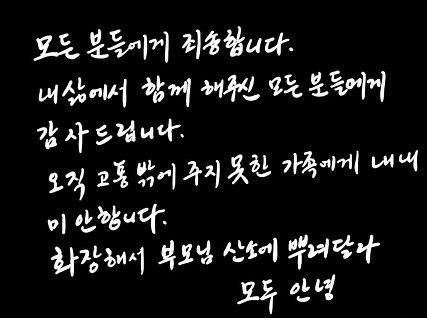 모든 분들에게 죄송합니다.
내 삶에서 함께 해주신 모든 분들에게
감사드립니다.
오직 고통밖에 주지 못한 가족에게 내내
미안합니다.
화장해서 부모님 산소에 뿌려달라
모두 안녕